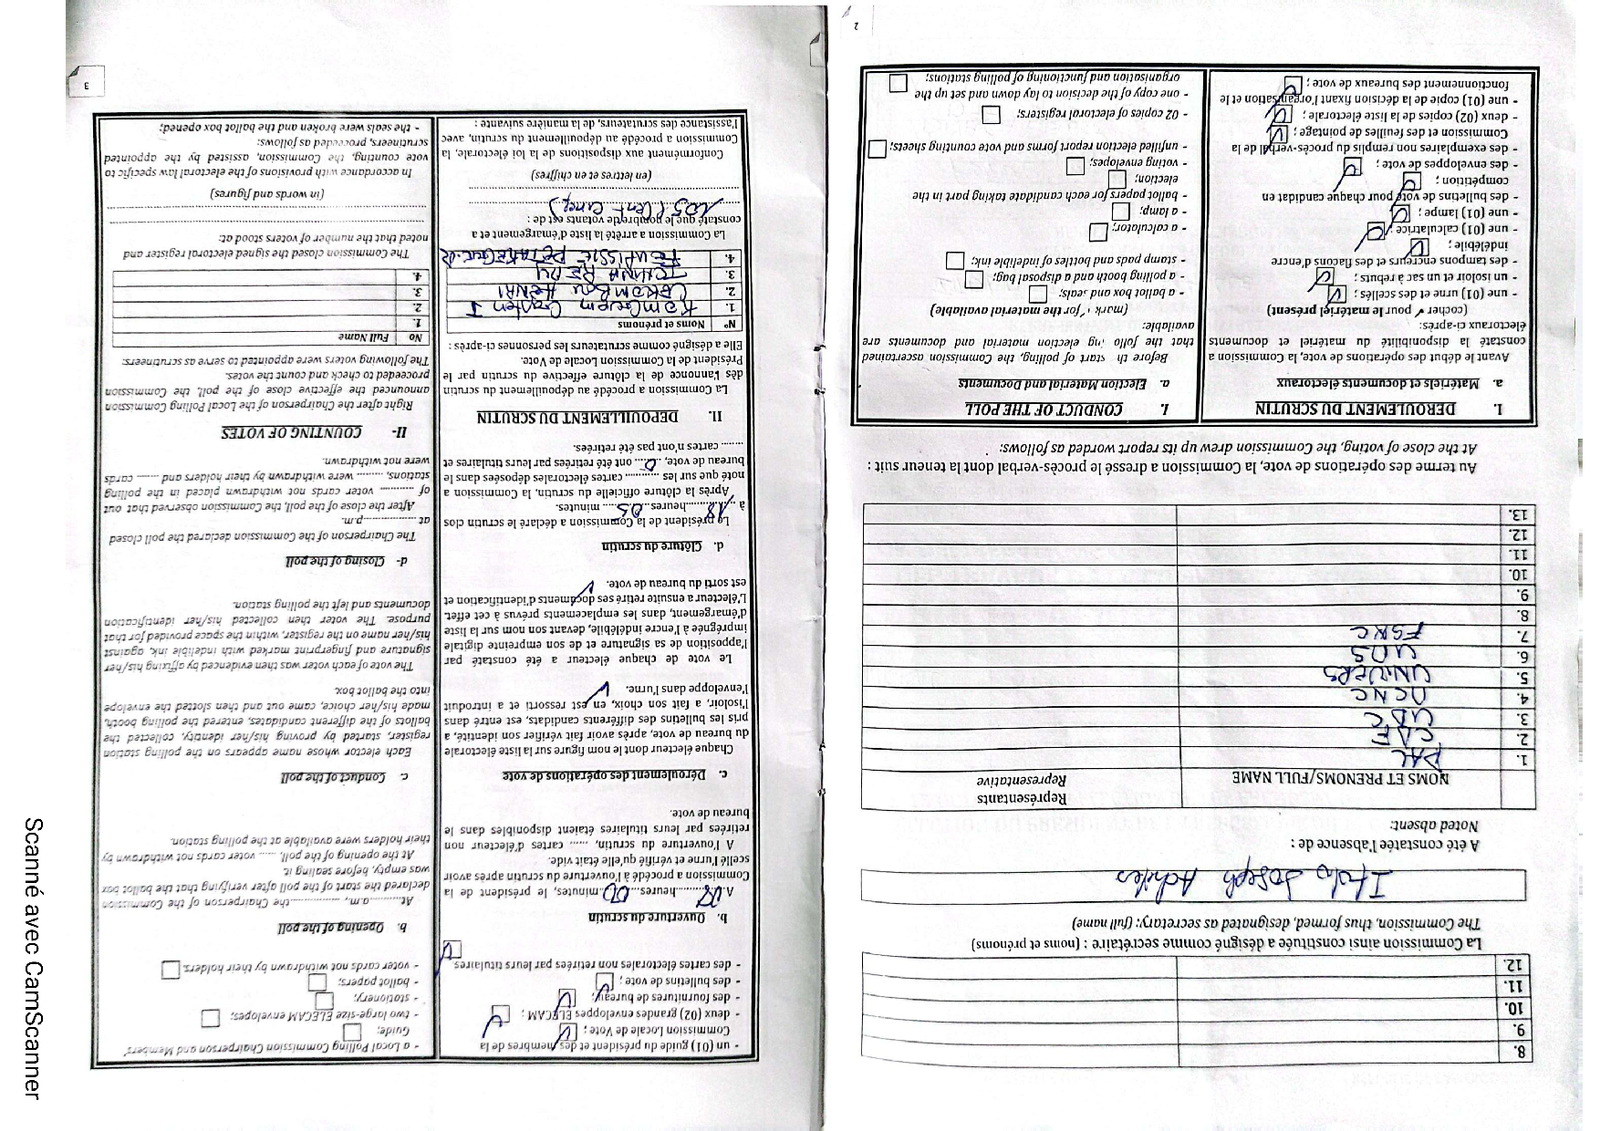 8.
9.
10.
11.
12.
La Commission ainsi constituée a désigné comme secrétaire : (noms et prénoms)
The Commission, thus formed, designated as secretary: (full name)
Joseph Achiles
A été constatée l'absence de :
Noted absent:
NOMS ET PRENOMS/FULL NAME
Représentants
Representative
1. PAL
2.
3. UDC
4. NCNC
5. UNIVERS
6. UDS
7. FSNC
8.
9.
10.
11.
12.
13.
Au terme des opérations de vote, la Commission a dressé le procès-verbal dont la teneur suit :
At the close of voting, the Commission drew up its report worded as follows:
I. DEROULEMENT DU SCRUTIN
a. Matériels et documents électoraux
Avant le début des opérations de vote, la Commission a
constaté la disponibilité du matériel et documents
électoraux ci-après:
(cocher ✓ pour le matériel présent)
- une (01) urne et des scellés ;
- un isoloir et un sac à rebuts ;
- des tampons encreurs et des flacons d'encre
indélébile ;
- une (01) calculatrice ;
- une (01) lampe ;
- des bulletins de vote pour chaque candidat en
compétition ;
- des enveloppes de vote ;
- des exemplaires non remplis du procès-verbal de la
Commission et des feuilles de pointage ;
- deux (02) copies de la liste électorale ;
- une (01) copie de la décision fixant l'organisation et le
fonctionnement des bureaux de vote ;
I. CONDUCT OF THE POLL
a. Election Material and Documents
Before th start of polling, the Commission ascertained
that the follo ing election material and documents are
available:
(mark ✓ for the material available)
- a ballot box and seals;
- a polling booth and a disposal bag;
- stamp pads and bottles of indelible ink;
- a calculator;
- a lamp;
- ballot papers for each candidate taking part in the
election;
- voting envelopes;
- unfilled election report forms and vote counting sheets;
- 02 copies of electoral registers;
- one copy of the decision to lay down and set up the
organisation and functioning of polling stations;
2
- un (01) guide du président et des membres de la
Commission Locale de Vote ;
- deux (02) grandes enveloppes ELECAM ;
- des fournitures de bureau ;
- des bulletins de vote ;
- des cartes électorales non retirées par leurs titulaires
b. Ouverture du scrutin
A 08 heures 00 minutes, le président de la
Commission a procédé à l'ouverture du scrutin après avoir
scellé l'urne et vérifié qu'elle était vide.
A l'ouverture du scrutin, ...... cartes d'électeur non
retirées par leurs titulaires étaient disponibles dans le
bureau de vote.
c. Déroulement des opérations de vote
Chaque électeur dont le nom figure sur la liste électorale
du bureau de vote, après avoir fait vérifier son identité, a
pris les bulletins des différents candidats, est entré dans
l'isoloir, a fait son choix, en est ressorti et a introduit
l'enveloppe dans l'urne.
Le vote de chaque électeur a été constaté par
l'apposition de sa signature et de son empreinte digitale
imprégnée à l'encre indélébile, devant son nom sur la liste
d'émargement, dans les emplacements prévus à cet effet.
L'électeur a ensuite retiré ses documents d'identification et
est sorti du bureau de vote.
d. Clôture du scrutin
Le président de la Commission a déclaré le scrutin clos
à 18 heures 05 minutes.
Après la clôture officielle du scrutin, la Commission a
noté que sur les .......... cartes électorales déposées dans le
bureau de vote, 0 ont été retirées par leurs titulaires et
...... cartes n'ont pas été retirées.
II. DEPOUILLEMENT DU SCRUTIN
La Commission a procédé au dépouillement du scrutin
dès l'annonce de la clôture effective du scrutin par le
Président de la Commission Locale de Vote.
Elle a désigné comme scrutateurs les personnes ci-après :
N° Noms et prénoms
1. Kamguem
2. HENRI
3. TCHANA
4.
La Commission a arrêté la liste d'émargement et a
constaté que le nombre de votants est de :
105 (Cent Cinq)
(en lettres et en chiffres)
Conformément aux dispositions de la loi électorale, la
Commission a procédé au dépouillement du scrutin, avec
l'assistance des scrutateurs, de la manière suivante :
- a Local Polling Commission Chairperson and Members'
Guide;
- two large-size ELECAM envelopes;
- stationery;
- ballot papers;
- voter cards not withdrawn by their holders.
b. Opening of the poll
At..........a.m., ..............the Chairperson of the Commission
declared the start of the poll after verifying that the ballot box
was empty, before sealing it.
At the opening of the poll, ...... voter cards not withdrawn by
their holders were available at the polling station.
c. Conduct of the poll
Each elector whose name appears on the polling station
register, started by proving his/her identity, collected the
ballots of the different candidates, entered the polling booth,
made his/her choice, came out and then slotted the envelope
into the ballot box.
The vote of each voter was then evidenced by affixing his/her
signature and fingerprint marked with indelible ink, against
his/her name on the register, within the space provided for that
purpose. The voter then collected his/her identification
documents and left the polling station.
d- Closing of the poll
The Chairperson of the Commission declared the poll closed
at ................p.m.
After the close of the poll, the Commission observed that out
of .......... voter cards not withdrawn placed in the polling
stations, ........ were withdrawn by their holders and ...... cards
were not withdrawn.
II- COUNTING OF VOTES
Right after the Chairperson of the Local Polling Commission
announced the effective close of the poll, the Commission
proceeded to check and count the votes.
The following voters were appointed to serve as scrutineers:
No Full Name
1.
2.
3.
4.
The Commission closed the signed electoral register and
noted that the number of voters stood at:
(in words and figures)
In accordance with provisions of the electoral law specific to
vote counting, the Commission, assisted by the appointed
scrutineers, proceeded as follows:
- the seals were broken and the ballot box opened;
3
Scanné avec CamScanner